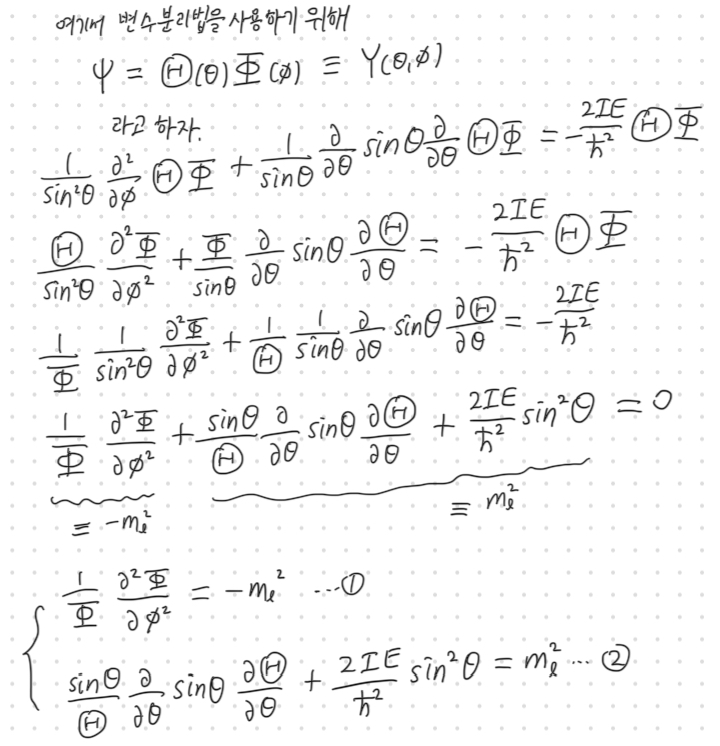 여기서 변수분리법을 사용하기 위해
ψ = Θ(θ)Φ(ϕ) ≡ Y(θ,ϕ)
라고 하자.
1/sin²θ ∂²/∂ϕ ΘΦ + 1/sinθ ∂/∂θ sinθ ∂/∂θ ΘΦ = -2IE/ħ² ΘΦ
Θ/sin²θ ∂²Φ/∂ϕ² + Φ/sinθ ∂/∂θ sinθ ∂Θ/∂θ = - 2IE/ħ² ΘΦ
1/Φ 1/sin²θ ∂²Φ/∂ϕ² + 1/Θ 1/sinθ ∂/∂θ sinθ ∂Θ/∂θ = -2IE/ħ²
1/Φ ∂²Φ/∂ϕ² + sinθ/Θ ∂/∂θ sinθ ∂Θ/∂θ + 2IE/ħ² sin²θ = 0
≡ -mₗ² ≡ mₗ²
1/Φ ∂²Φ/∂ϕ² = -mₗ² ...①
sinθ/Θ ∂/∂θ sinθ ∂Θ/∂θ + 2IE/ħ² sin²θ = mₗ² ...②